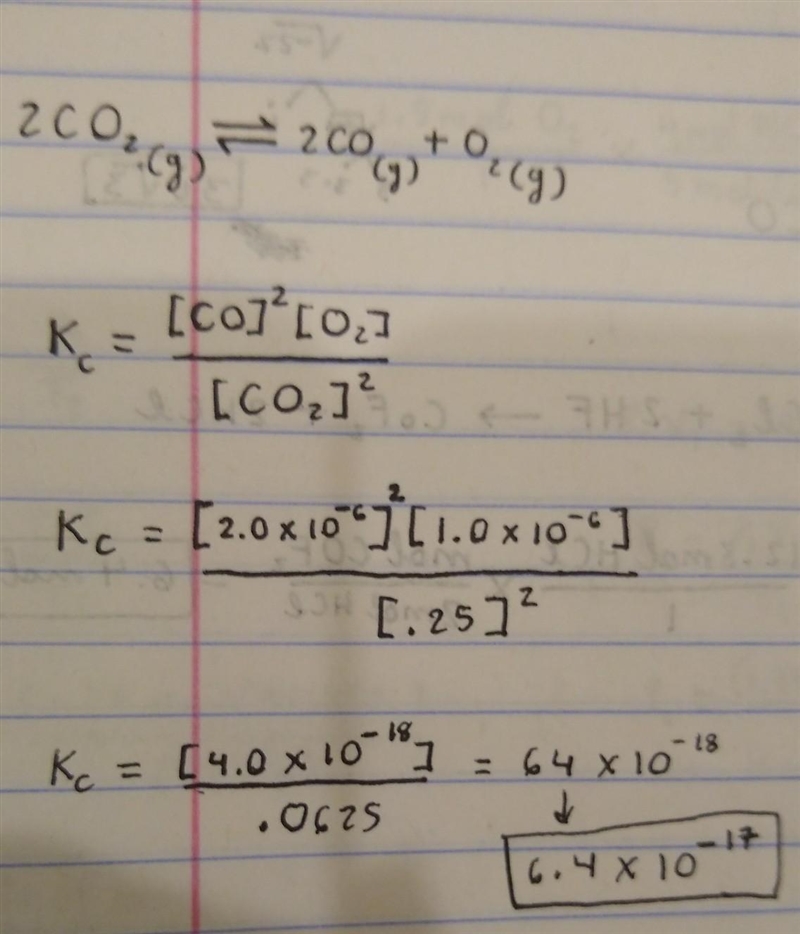 2CO₂(g) ⇌ 2CO(g) + O₂(g)
Kc = [CO]² [O₂] / [CO₂]²
Kc = [2.0 × 10⁻⁶]² [1.0 × 10⁻⁶] / [.25]²
Kc = [4.0 × 10⁻¹⁸] / .0625 = 64 × 10⁻¹⁸
↓
6.4 × 10⁻¹⁷